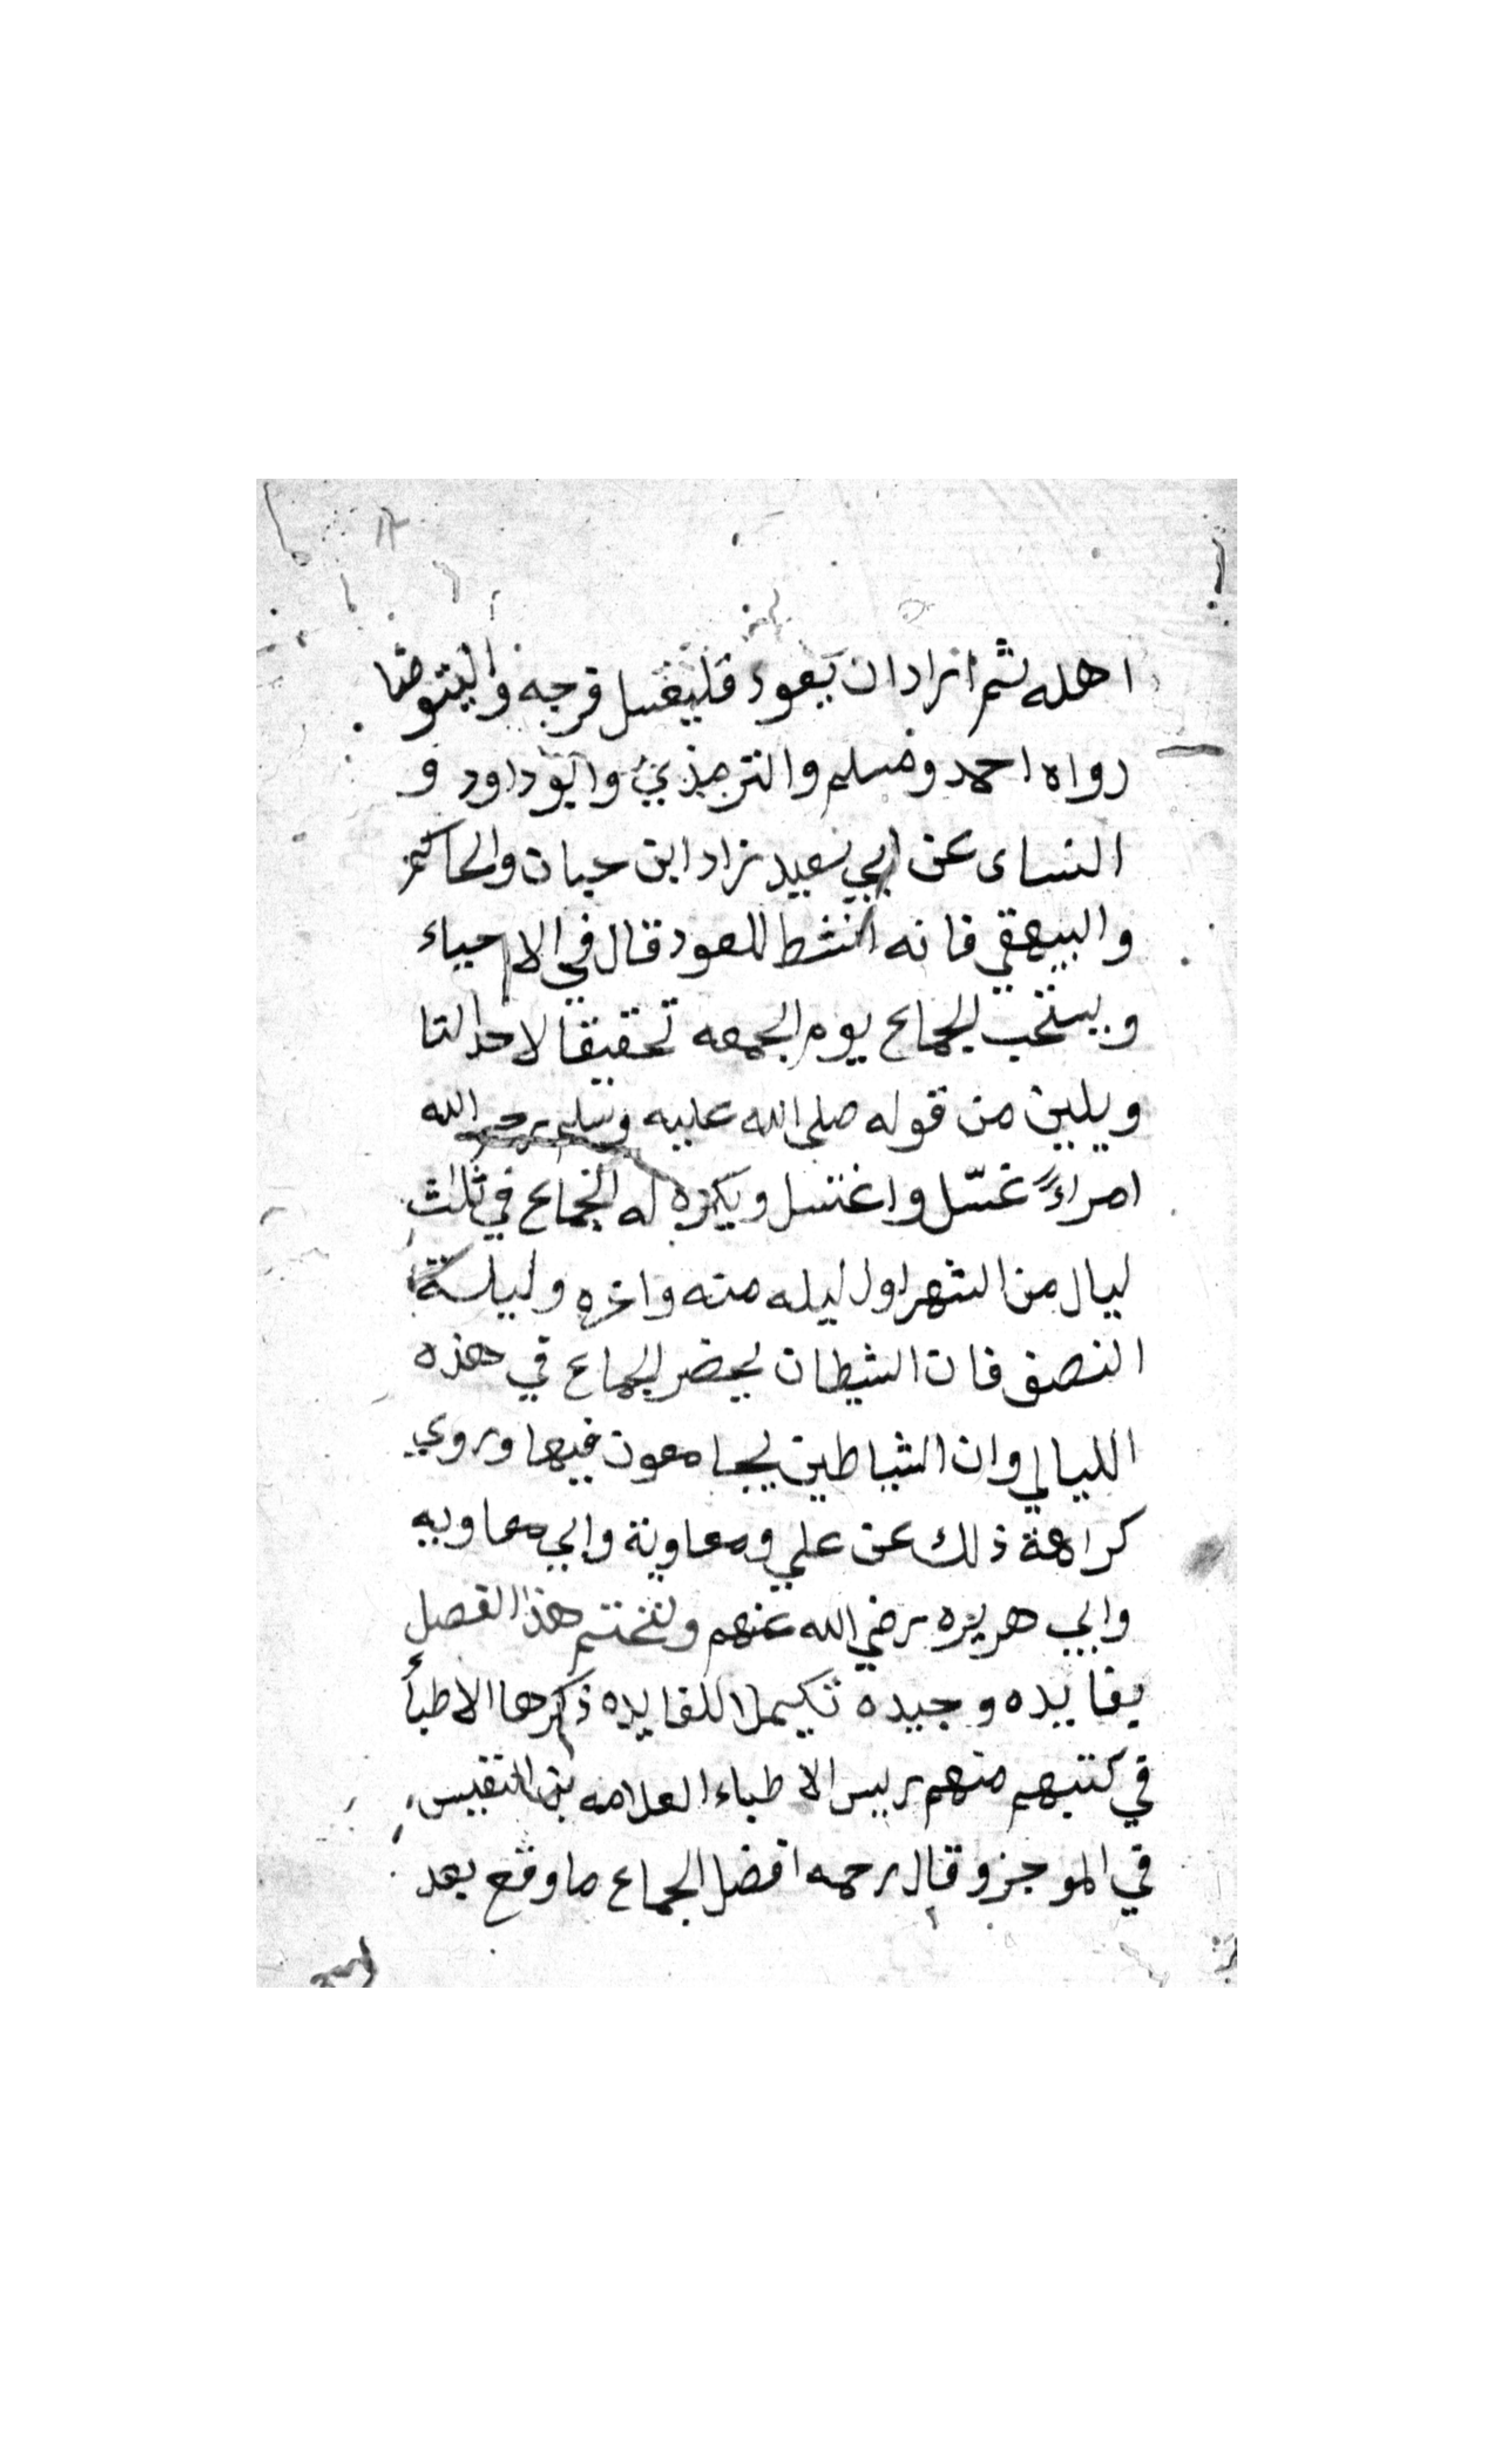 اهله ثم اراد ان يعود فليغسل فرجه واليتوضا
رواه احمد ومسلم والترمذي وابوداود و
النساى عن ابي سعيد زاد ابن حبان والحاكم
والبيهقي فانه انشط للعود قال في الاحياء
ويستحب الجماع يوم الجمعه تحقيقا لاحد التا
ويلين من قوله صلى الله عليه وسلم رحم الله
امراءً غسّل واغتسل ويكره له الجماع في ثلاث
ليال من الشهر اول ليله منه واخره وليلة
النصف فان الشيطان يحضر الجماع في هذه
الليالي وان الشياطين يجامعون فيها وروي
كراهة ذلك عن علي ومعاوية وابي معاويه
وابي هريره رضي الله عنهم ولنختتم هذا الفصل
بفايده وجيده تكيملا للفايده ذكرها الاطبأ
في كتبهم منهم رييس الاطباء العلامه بن النفيس
في الموجز وقال رحمه افضل الجماع ما وقع بعد